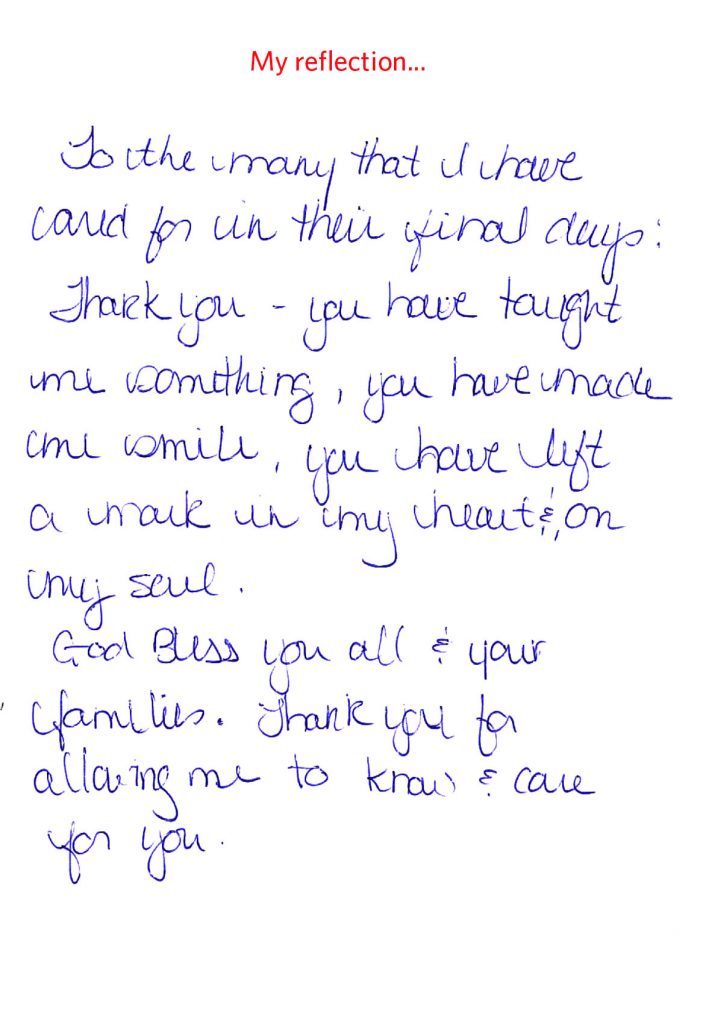 My reflection...
To the many that I have
cared for in their final days:
Thank you - you have taught
me something, you have made
me smile, you have left
a mark in my heart &, on
my soul.
God Bless you all & your
families. Thank you for
allowing me to know & care
for you.